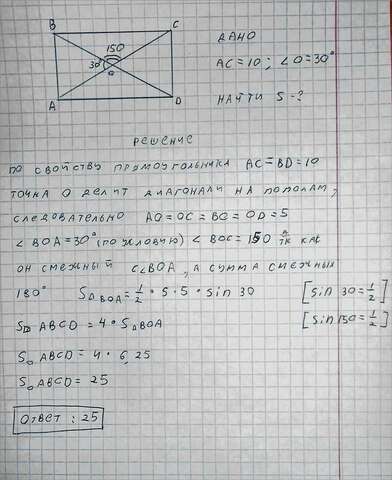 B
C
150
30
O
A
D
ДАНО
AC=10; ∠O=30°
НАЙТИ S-?
РЕШЕНИЕ
ПО СВОЙСТВУ ПРЯМОУГОЛЬНИКА AC=BD=10
ТОЧКА O ДЕЛИТ ДИАГОНАЛИ НА ПОПОЛАМ,
СЛЕДОВАТЕЛЬНО AO=OC=BO=OD=5
∠BOA=30° (ПО УСЛОВИЮ) ∠BOC=150 ТК КАК
ОН СМЕЖНЫЙ С ∠BOA, А СУММА СМЕЖНЫХ
180° S△BOA=1/2·5·5·sin 30 [sin 30=1/2]
S ABCD=4·S△BOA [sin 150=1/2]
S ABCD=4·6,25
S ABCD=25
ОТВЕТ: 25